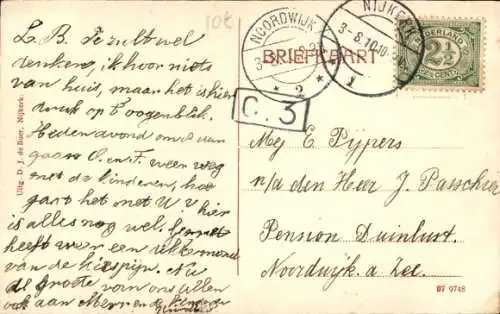 10€
NOORDWIJK
2
NIJKERK
3-8.10.10-
1
NEDERLAND
2½
CENT
BRIEFKAART
C. 3
Uitg. D. J. de Boer, Nijkerk.
L. B. Je zult wel
denken, ik hoor niets
van huis, maar het is hier
druk op 't oogenblik.
Heden avond om
gaan O. en F. weer weg
met de kinderen, hoe
gaat het met U v hier
is alles nog wel.
heeft weer een dikke mond
van de kiespijn. Nu
de groete van ons allen
ook aan Mevr en de
Mej E Pijpers
p/a den Heer J. Passchier
Pension Duinlust.
Noordwijk a Zee.
07 9748